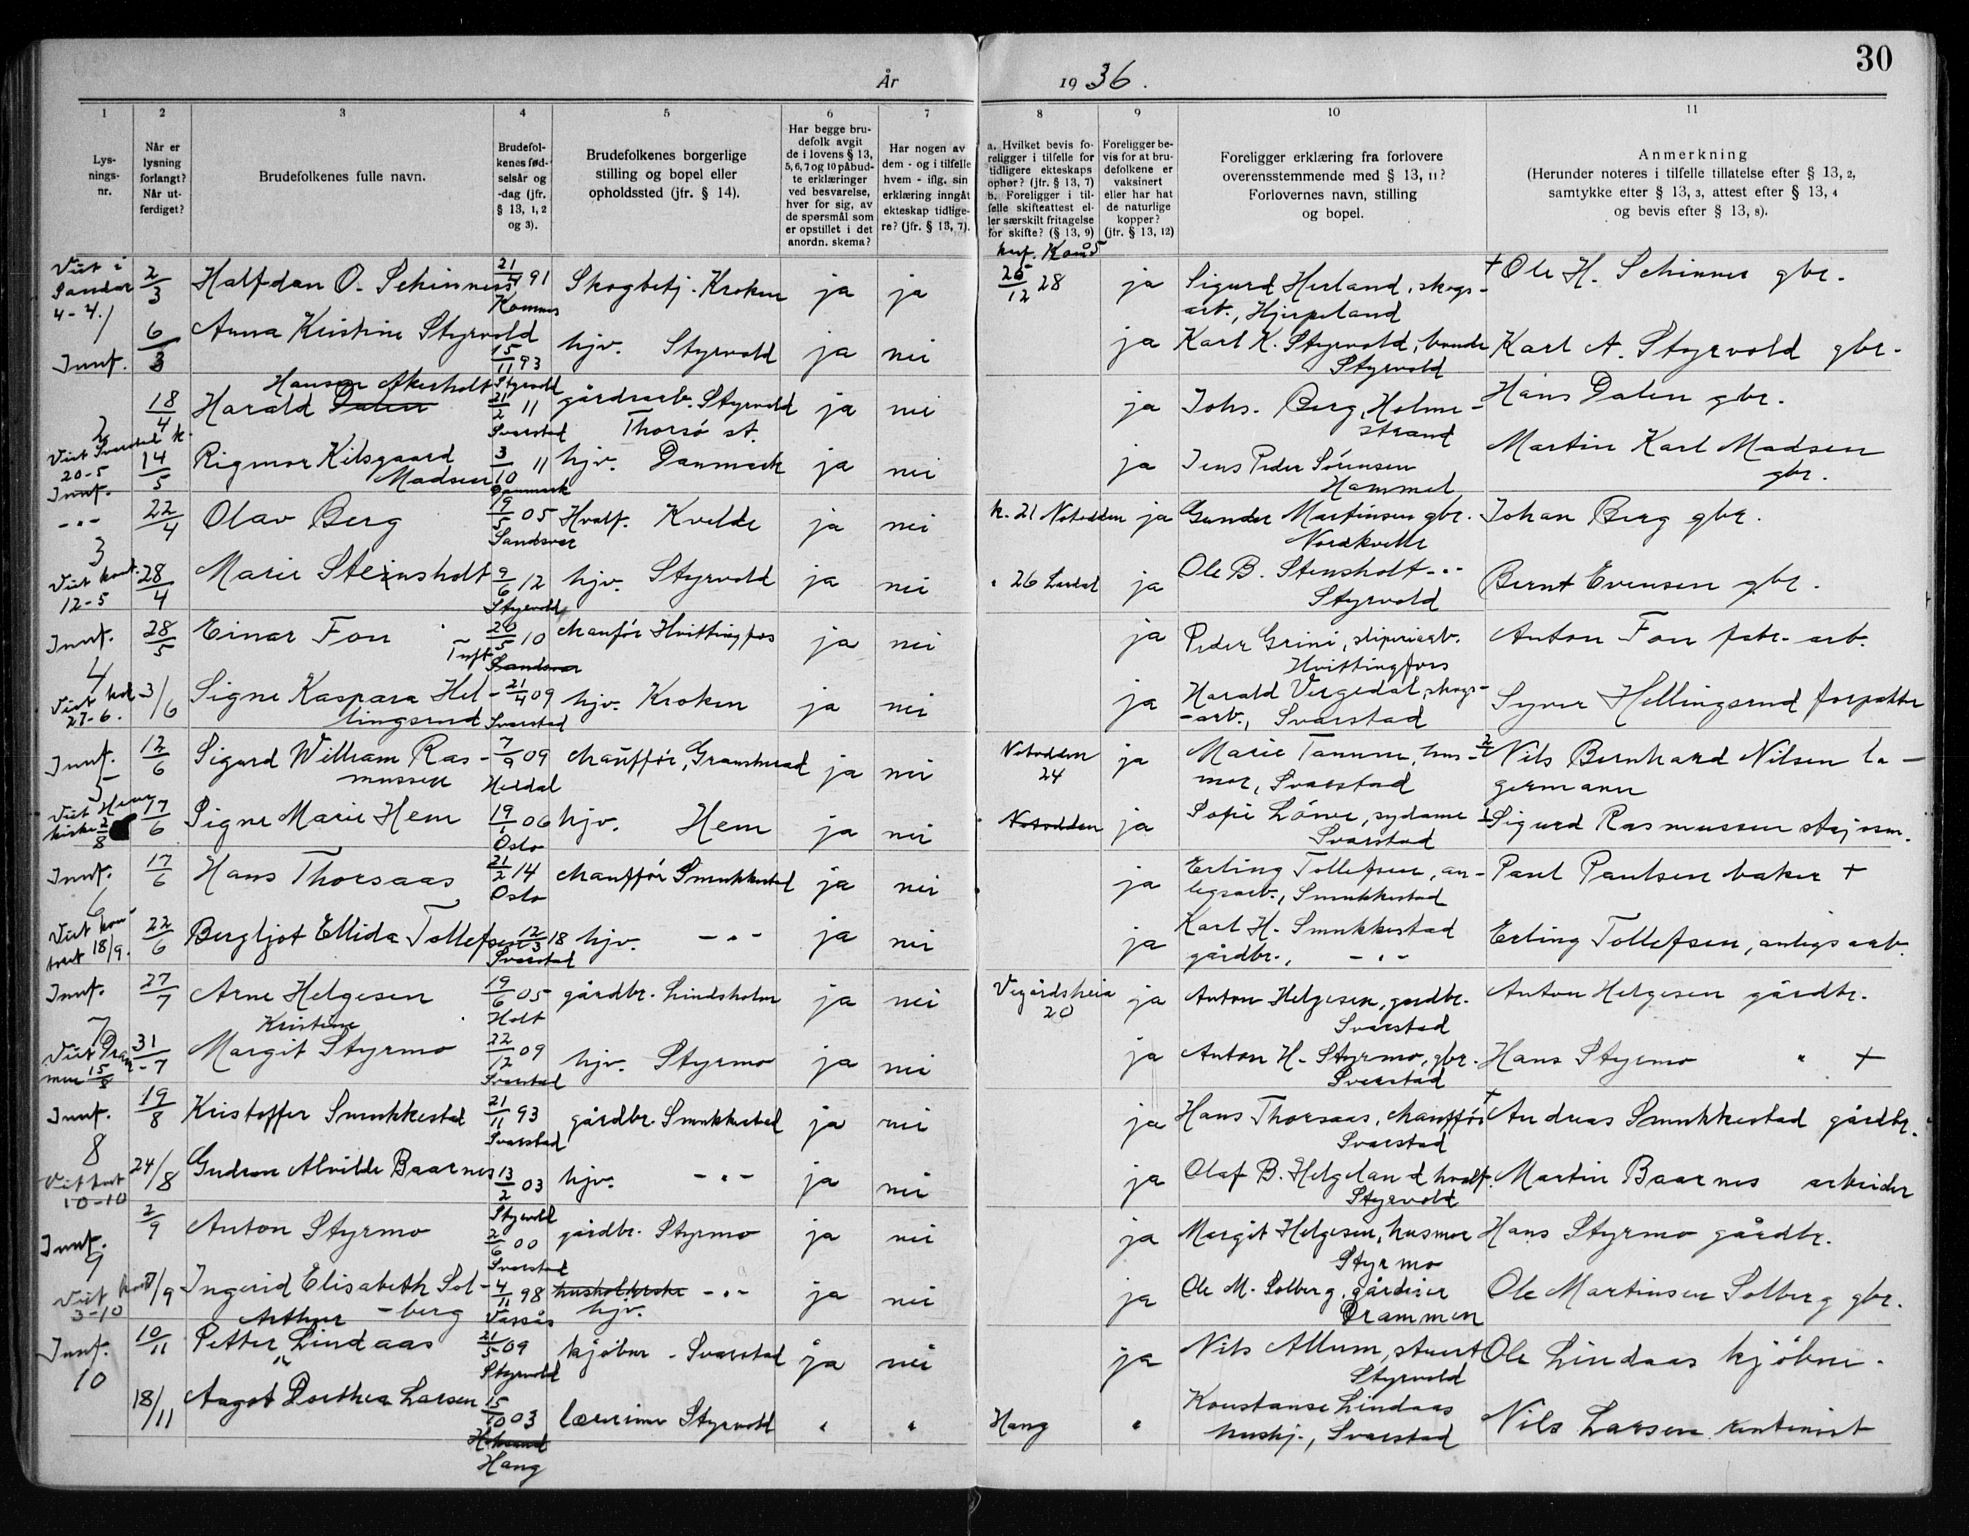 30
År 1936.
1 2 3 4 5 6 7 8 9 10 11
Lys-
nings-
nr.
Når er
lysning
forlangt?
Når ut-
ferdiget?
Brudefolkenes fulle navn.
Brudefol-
kenes fød-
selsår og
-dag (jfr.
§ 13, 1, 2
og 3).
Brudefolkenes borgerlige
stilling og bopel eller
opholdssted (jfr. § 14).
Har begge bru-
defolk avgit
de i lovens § 13,
5, 6, 7 og 10 påbud-
te erklæringer
ved besvarelse,
hver for sig, av
de spørsmål som
er opstillet i det
anordn. skema?
Har nogen av
dem - og i tilfelle
hvem - iflg. sin
erklæring inngåt
ekteskap tidlige-
re? (jfr. § 13, 7).
a. Hvilket bevis fo-
religger i tilfelle for
tidligere ekteskaps
ophør? (jfr. § 13, 7)
b. Foreligger i til-
felle skifteattest el-
ler særskilt fritagelse
for skifte? (§ 13, 9)
Foreligger be-
vis for at bru-
defolkene er
vaksinert
eller har hat
de naturlige
kopper?
(jfr. § 13, 12)
Foreligger erklæring fra forlovere
overensstemmende med § 13, 11?
Forlovernes navn, stilling
og bopel.
Anmerkning
(Herunder noteres i tilfelle tillatelse efter § 13, 2,
samtykke efter § 13, 3, attest efter § 13, 4
og bevis efter § 13, 8).
Viet i Sandar 4-4. 2/3 Halfdan O. Schinnes 21/4 91 Komnes Skogbetj. Kroken ja ja 26/12 28 ja Sigurd Herland, skogs-
arb., Hjerpeland + Ole H. Schinnes gbr.
1 Innf. 6/3 Anna Kristine Styrvold 15/11 93 Styrvold hjv. Styrvold ja nei ja Karl K. Styrvold, bonde
Styrvold Karl A. Styrvold gbr.
18/4 Harald Dalen Hansen Akerholt 21/2 11 Svarstad gårdsarb. Styrvold
Thorsö st. ja nei ja Johs. Berg, Holme-
strand Hans Dalen gbr.
2 Viet Svarstad k. 20-5 14/5 Rigmor Kilsgaard
Madsen 3/10 11 Danmark hjv. Danmark ja nei ja Jens Peder Sørensen
Hammel Martin Karl Madsen
gbr.
Innf. -"- 22/4 Olav Berg 9/5 05 Sandsvær Hvalf. Kvelde ja nei k. 21 Notodden ja Gunder Martinsen gbr.
Nordkvelle Johan Berg gbr.
3 Viet kont. 12-5 28/4 Marie Steinsholt 9/6 12 Styrvold hjv. Styrvold ja nei " 26 Lardal ja Ole B. Stensholt -"-
Styrvold Bernt Evensen gbr.
Innf. 28/5 Einar Fon Tuft 20/5 10 Sandsvær chauför Hvittingfos ja nei ja Peder Grini, sliperiarb.
Hvittingfoss Anton Fon fabr. arb.
4 Viet kont 27-6. 3/6 Signe Kaspara Hel-
lingsrud 21/4 09 Svarstad hjv. Kroken ja nei ja Harald Vergedal, skogs-
-arb., Svarstad Syver Hellingsrud forpakter
Innf. 12/6 Sigurd William Ras-
mussen 7/9 09 Heddal chauffør, Gransherad ja nei Notodden
24 ja Marie Tamme, hus-
mor, Svarstad 2/ Nils Bernhard Nilsen la-
germann
5 Viet Hem kirke 2/8 17/6 Signe Marie Hem 19/1 06 Oslo hjv. Hem ja nei Notodden ja Sofie Löwe, sydame
Svarstad 1/ Sigurd Rasmussen
Innf. 17/6 Hans Thorsaas 21/2 14 Oslo chauffør Smukkestad ja nei ja Erling Tollefsen, an-
legsarb., Smukkestad Paul Paulsen baker +
6 Viet kontoret 18/9. 22/6 Bergljot Ellida Tollefsen 12/3 18 Svarstad hjv. -"- ja nei ja Karl H. Smukkestad
gårdbr., -"- Erling Tollefsen, anlegsarb.
Innf. 27/7 Arne Helgesen 19/6 05 Holt gårdbr. Lindsholm ja nei Vegårdsheia
20 ja Anton Helgesen, gardbr.
Svarstad Anton Helgesen gårdbr.
7 Viet Drammen 15/8 31/7 Margit Kristine Styrmo 22/12 09 Svarstad hjv. Styrmo ja nei ja Anton H. Styrmo, gbr.
Svarstad Hans Styrmo " +
Innf. 19/8 Kristoffer Smukkestad 21/11 93 Svarstad gårdbr. Smukkestad ja nei ja Hans Thorsaas, chauffør
Svarstad + Andreas Smukkestad gårdbr.
8 Viet kont 10-10 24/8 Gudrun Alvilde Baarnes 13/2 03 Styrvold hjv. -"- ja nei ja Olaf B. Helgeland hvalf.
Styrvold Martin Baarnes arbeider
Innf. 2/9 Anton Styrmo 2/6 00 Svarstad gårdbr. Styrmo ja nei ja Margit Helgesen, husmor
Styrmo Hans Styrmo gårdbr.
9 Viet kont 3-10 7/9 Ingerid Elisabeth Sol-
-berg 4/11 98 Vassås husholderske -"-
hjv. ja nei ja Ole M. Solberg, gårdeier
Drammen Ole Martinsen Solberg gbr.
Innf. 10/11 Petter Arthur Lindaas 21/5 09 Styrvold kjøbm. Svarstad ja nei ja Nils Allum, stuert
Styrvold Ole Lindaas kjøbm.
10 18/11 Aagot Dorthea Larsen 15/10 03 Haug lærerinne Styrvold " " Haug " Konstanse Lindaas
hushj., Svarstad Nils Larsen rentenist